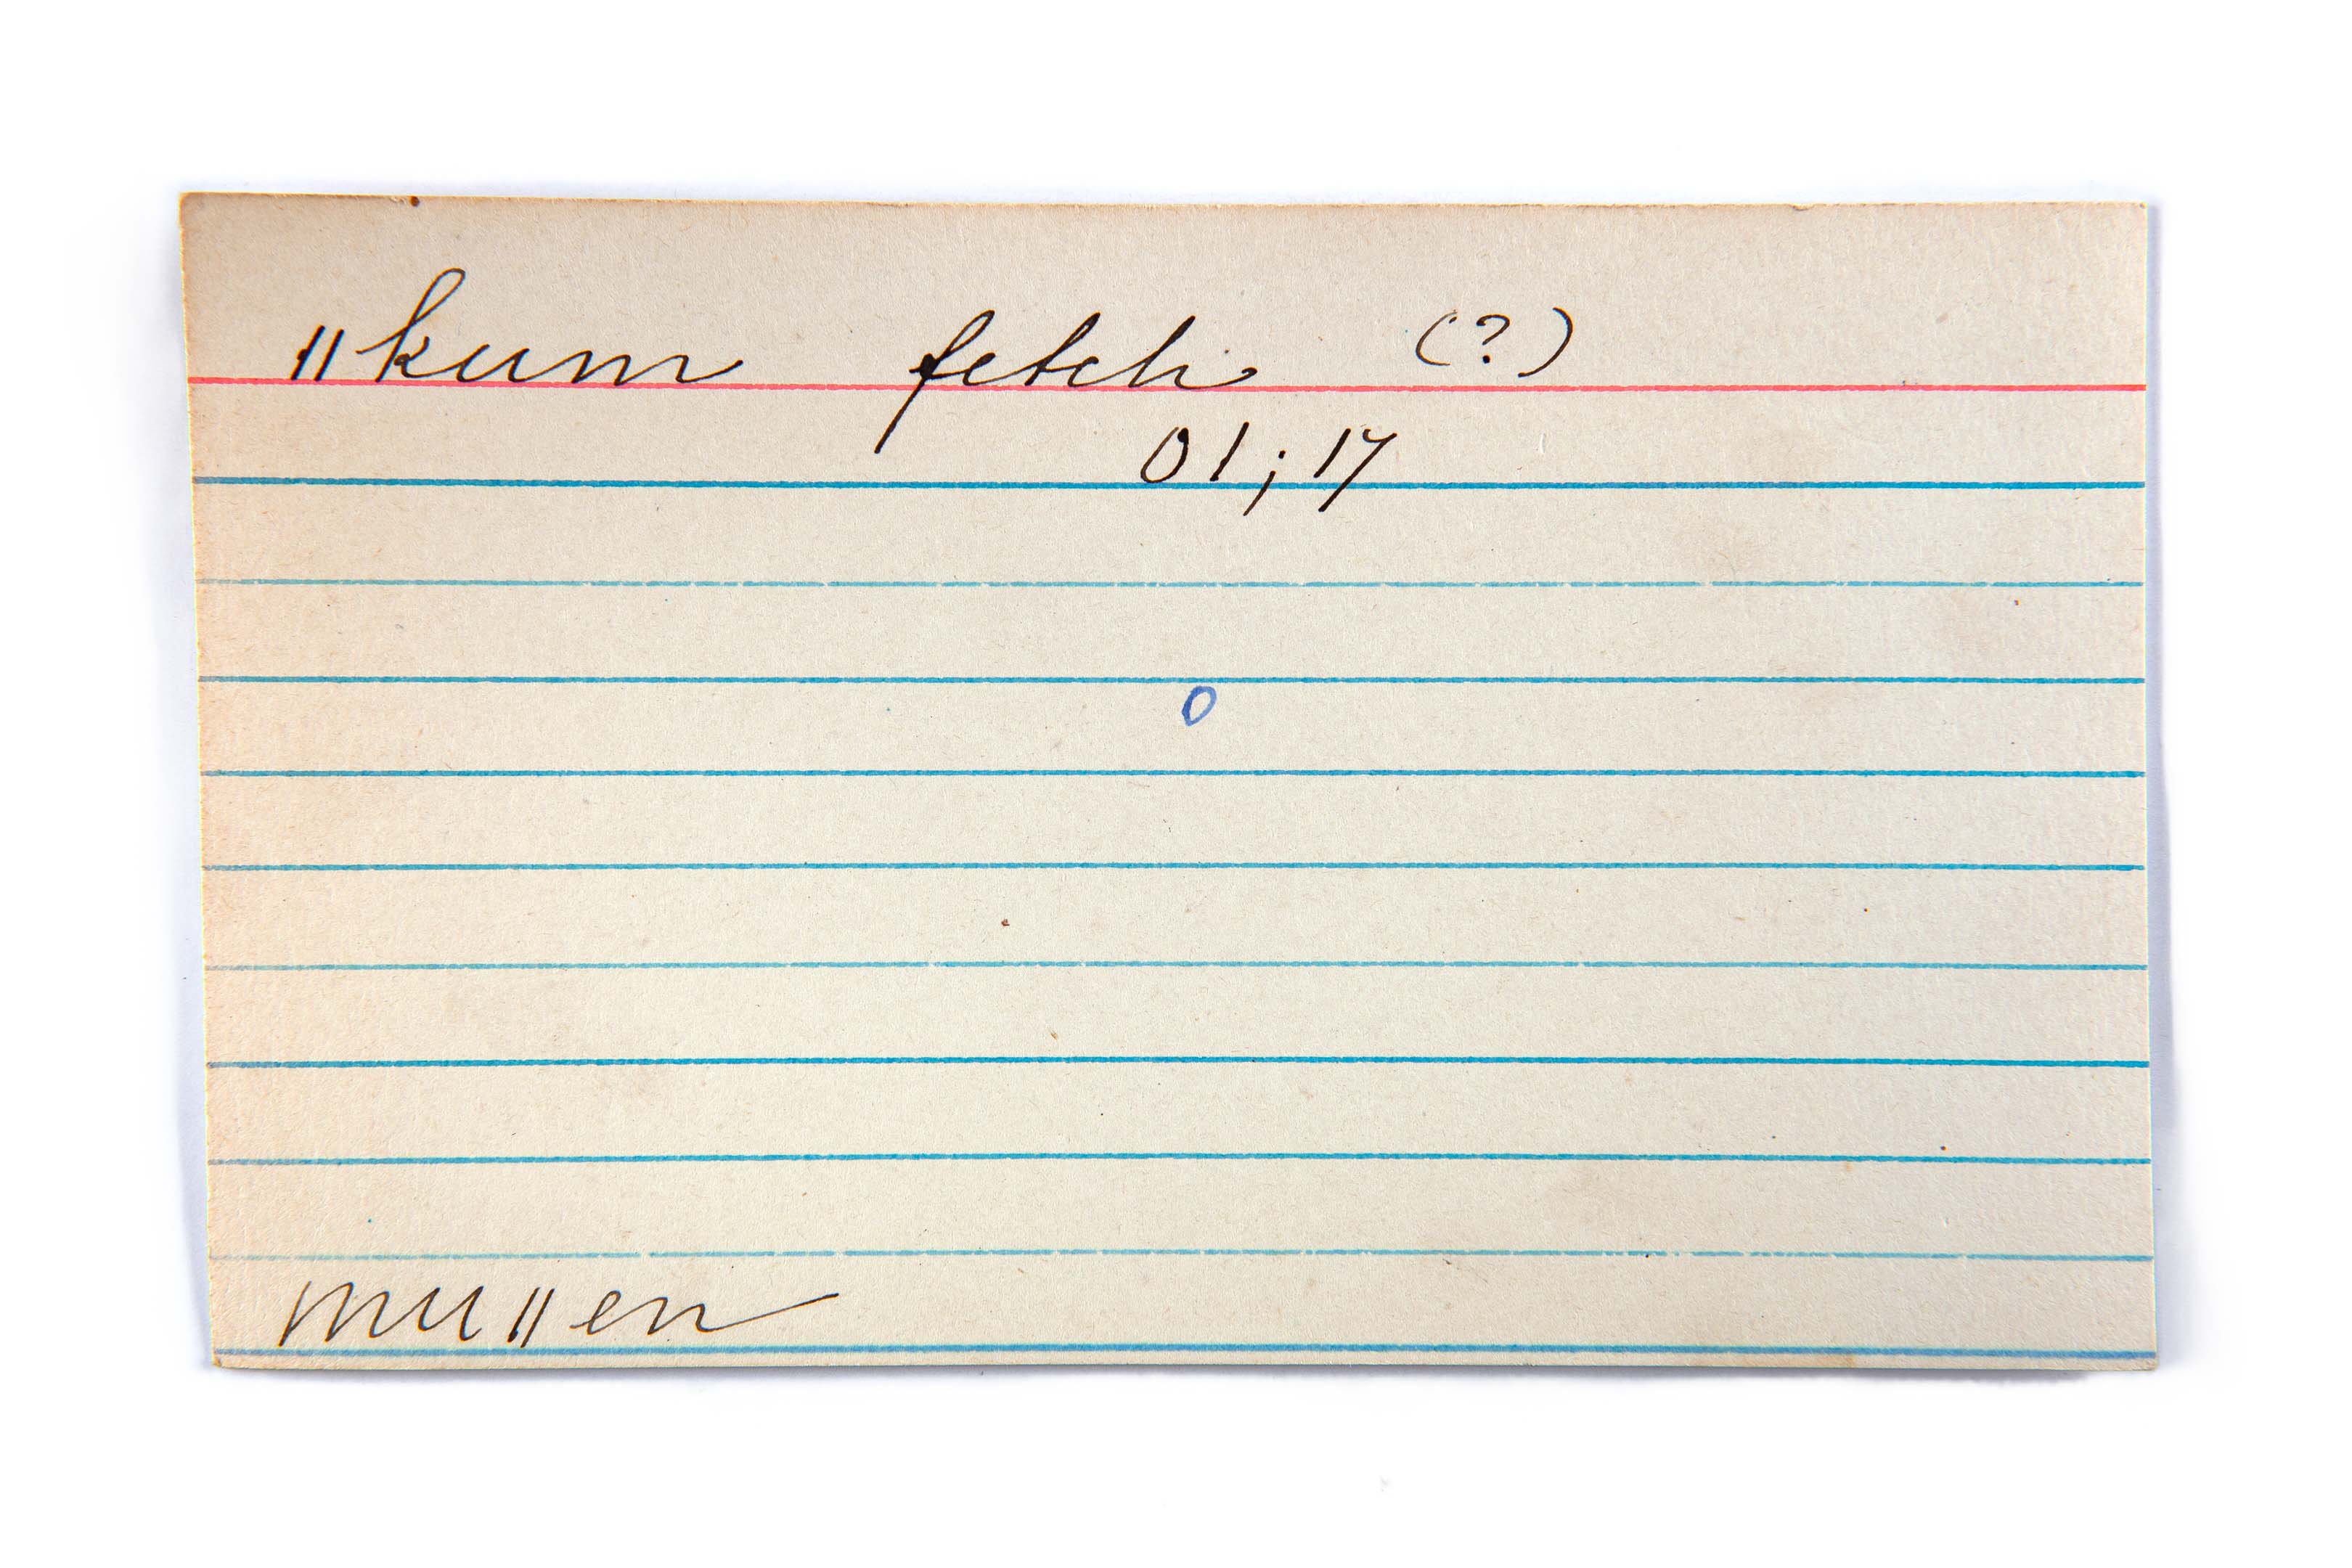 ||kum fetch (?)
01; 17
0
mu||en